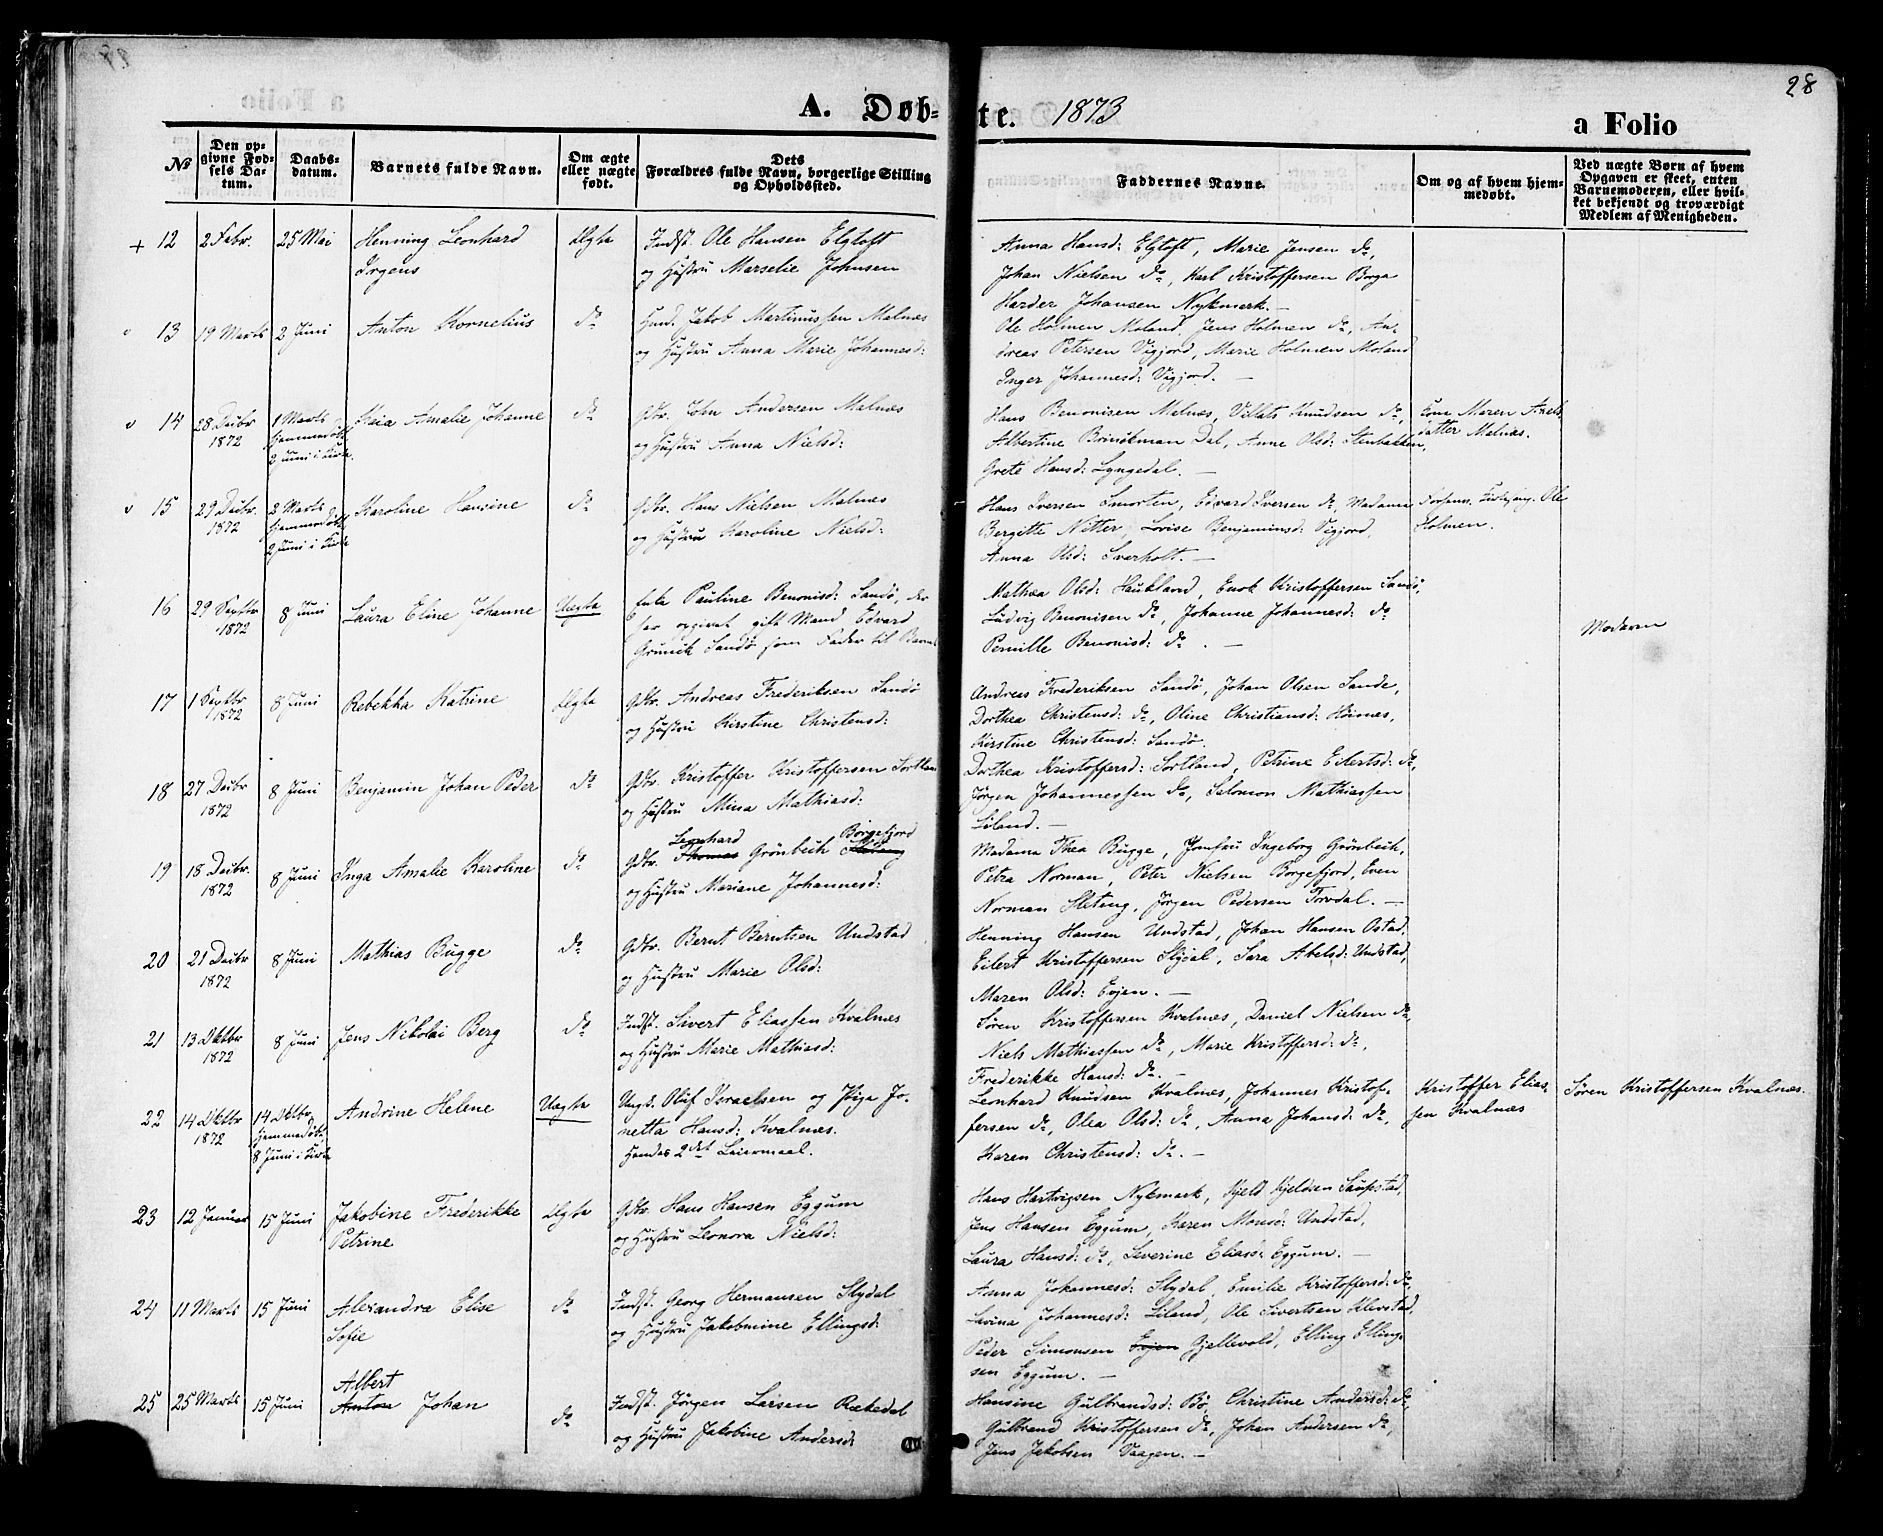 28
A. Døb-te. 1873
a Folio
№
Den op-
givne Fød-
sels Da-
tum.
Daabs-
datum.
Barnets fulde Navn.
Om ægte
eller uægte
født.
Dets
Forældres fulde Navn, borgerlige Stilling
og Opholdssted.
Faddernes Navne.
Om og af hvem hjem-
medøbt.
Ved uægte Børn af hvem
Opgaven er skeet, enten
Barnemoderen, eller hvil-
ket bekjendt og troværdigt
Medlem af Menigheden.
+ 12 2 Febr. 25 Mai Henning Leonhard Ægte Indst. Ole Hansen Elgtoft Anna Hansd: Elgtoft, Marie Jensen do,
Irgens og Hustru Marselie Johnsen Johan Nielsen do, Karl Kristoffersen Borga
Harder Johansen Nykmark. —
13 19 Marts 2 Juni Anton Kornelius do Husd. Jakob Martinussen Malnæs Ole Holmen Moland, Jens Holmen do, An-
og Hustru Anna Marie Johannesd: dreas Petersen Vigjord, Marie Holmen Moland
Inger Johannesd: Vigjord. —
v 14 28 Decbr 1 Marts Kaia Amalie Johanne do Gdbr. John Andersen Malnæs Hans Benonisen Malnæs, Villats Knudsen do, Kone Maren Axels-
1872 hjemmedøbt og Hustru Anna Nielsd: Albertine Brinckman Dal, Anne Olsd: Stenbakken, datter Malnæs.
2 Juni i Kirke Grete Hansd: Lyngedal. —
v 15 29 Decbr. 2 Marts Karoline Hansine do Gdbr. Hans Nielsen Malnæs Hans Iversen Smorten, Edvard Iversen do, Madame Ole
1872 hjemmedøbt og Hustru Karoline Nielsd: Bergitte Nitter, Lovise Benjaminsd: Vigjord, Holmen.
2 Juni i Kirke Anna Olsd: Sverholt. —
16 29 Septbr 8 Juni Laura Eline Johanne Uægte Enke Pauline Benonisd: Sandø, der Mathea Olsd: Haukland, Enok Kristoffersen Sandø,
1872 har opgivet gift Mand Edvard Ludvig Benonisen do, Johanne Johannesd: do Moderen
Grunik Sandø som Fader til Barnet Pernille Benonisd: do. —
17 1 Septbr 8 Juni Rebekka Katrine Ægte Gdbr. Andreas Frederiksen Sandø Andreas Frederiksen Sandø, Johan Olsen Sande,
1872 og Hustru Kirstine Christensd: Dorthea Christensd: do, Oline Christiansd: Høinæs,
Kirstine Christensd: Sandø.
18 27 Decbr 8 Juni Benjamin Johan Peder do Gdbr. Kristoffer Kristoffersen Sortland Dorthea Kristoffersd: Sortland, Petrine Eilertsd: do,
1872 og Hustru Mina Mathiasd: Jørgen Johannessen do, Salomon Mathiassen
Liland. —
Leonhard Borgefjord
19 18 Decbr. 8 Juni Inga Amalie Karoline do Gdbr. Thomas Grönbech Madame Thea Bugge, Jomfru Ingeborg Grönbech,
1872 og Hustru Mariane Johannesd: Petra Norman, Peter Nielsen Borgefjord, Even
Norman Sleteng, Jörgen Pedersen Torvdal. —
20 21 Decbr 8 Juni Mathias Bugge do Gdbr. Bernt Berntsen Undstad Henning Hansen Undstad, Johan Hansen Ostad,
1872 og Hustru Marie Olsd: Eilert Kristoffersen Skjdal, Sara Abelsd: Undstad,
Maren Olsd: Evjen. —
21 13 Oktbr 8 Juni Jens Nikolai Berg do Indst. Sivert Eliassen Kvalnæs Søren Kristoffersen Kvalnæs, Daniel Nielsen do,
1872 og Hustru Marie Mathiasd: Niels Mathiassen do, Marie Kristoffersd: do,
Frederikke Hansd: do. —
22 14 Oktbr 14 Oktbr Andrine Helene Uægte Ungk. Oluf Israelsen og Pige Jo- Leonhard Knudsen Kvalnæs, Johannes Kristof- Kristoffer Elias- Søren Kristoffersen Kvalnæs.
1872 hjemmedøbt netta Hansd: Kvalnæs. fersen do, Olea Olsd: do, Anna Johansd: do, sen Kvalnæs
8 Juni i Kirke Hendes 2det Leiermaal. Karen Christensd: do. —
23 12 Januar 15 Juni Jakobine Frederikke Ægte Gdbr. Hans Hansen Eggum Hans Hartvigsen Nykmark, Kjeld Kjeldsen Saupstad,
Petrine og Hustru Leonora Nielsd: Jens Hansen Eggum, Karen Monsd: Undstad,
Laura Hansd: do, Severine Eliasd: Eggum. —
24 11 Marts 15 Juni Alexandra Elise do Indst. Georg Hermansen Slydal Anna Johannesd: Slydal, Emilie Kristoffersd: do,
Sofie og Hustru Jakobmine Ellingsd: Lavina Johannesd: Liland, Ole Sivertsen Klevstad,
Peder Simonsen Evjen Gjellevold, Elling Elling-
sen Eggum. —
Albert
25 25 Marts 15 Juni Anton Johan do Indst. Jørgen Larsen Rækedal Hansine Gulbrandsd: Bø, Christine Andersd: do,
og Hustru Jakobine Andersd: Gulbrand Kristoffersen do, Johan Andersen do,
Jens Jakobsen Vaagen. —